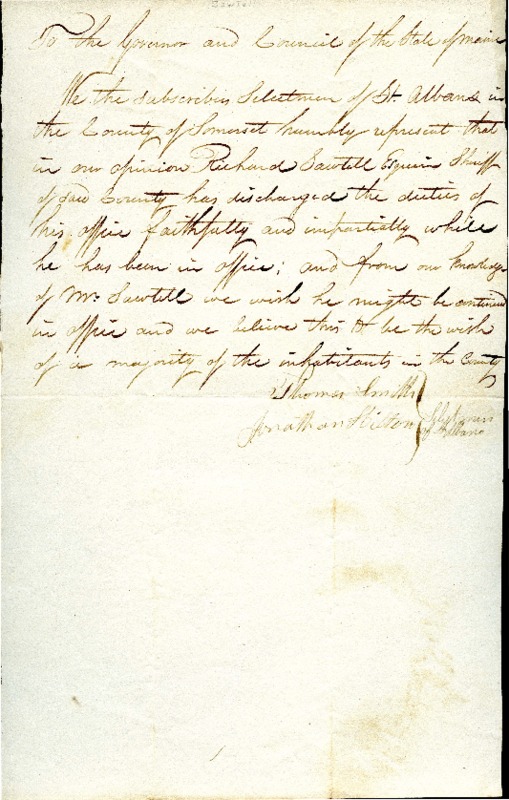 Sawtell
To the Governor and Council of the State of Maine
We the subscribers Selectmen of St. Albans in
the County of Somerset humbly represent that
in our opinion Richard Sawtell Esquire Sheriff
of said County has discharged the duties of
his office faithfully and impartially while
he has been in office; and from our knowledge
of Mr. Sawtell we wish he might be continued
in office and we believe this to be the wish
of a majority of the inhabitants in the County
Thomas Smith
Jonathan Hilton
Selectmen
of St. Albans